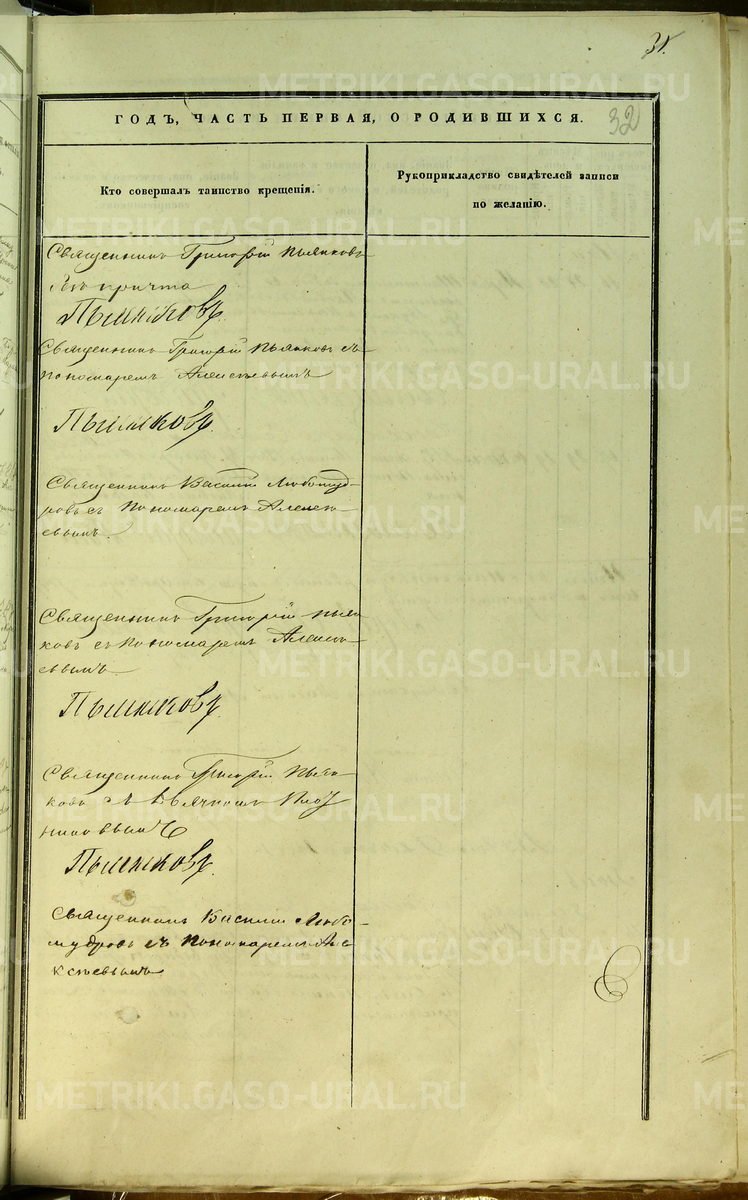 31.
32
ГОДЪ, ЧАСТЬ ПЕРВАЯ, О РОДИВШИХСЯ.
Кто совершалъ таинство крещенія.
Рукоприкладство свидѣтелей записи
по желанію.
Священникъ Григорій Пьянковъ
причта
Священникъ Григорій Пьянковъ съ
пономаремъ Алексѣевымъ
Священникъ Василій Любомуд-
ровъ съ Пономаремъ Алексѣ-
евымъ.
Священникъ Григорій Пьян-
ковъ съ пономаремъ Алексѣ-
евымъ
Священникъ Григорій Пьян-
ковъ съ
Священникъ Василій Любо-
мудровъ съ Пономаремъ Але-
ксѣевымъ
METRIKI.GASO-URAL.RU
METRIKI.GASO-URAL.RU
METRIKI.GASO-URAL.RU
METRIKI.GASO-URAL.RU
METRIKI.GASO-URAL.RU
METRIKI.GASO-URAL.RU
METRIKI.GASO-URAL.RU